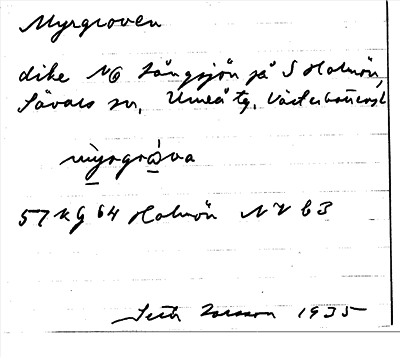 Myrgroven
dike NO Långsjön på S Holmön,
Sävars sn, Umeå tg, Västerbotten
myrgròva
57 Kg 64 Holmön NV b3
1935